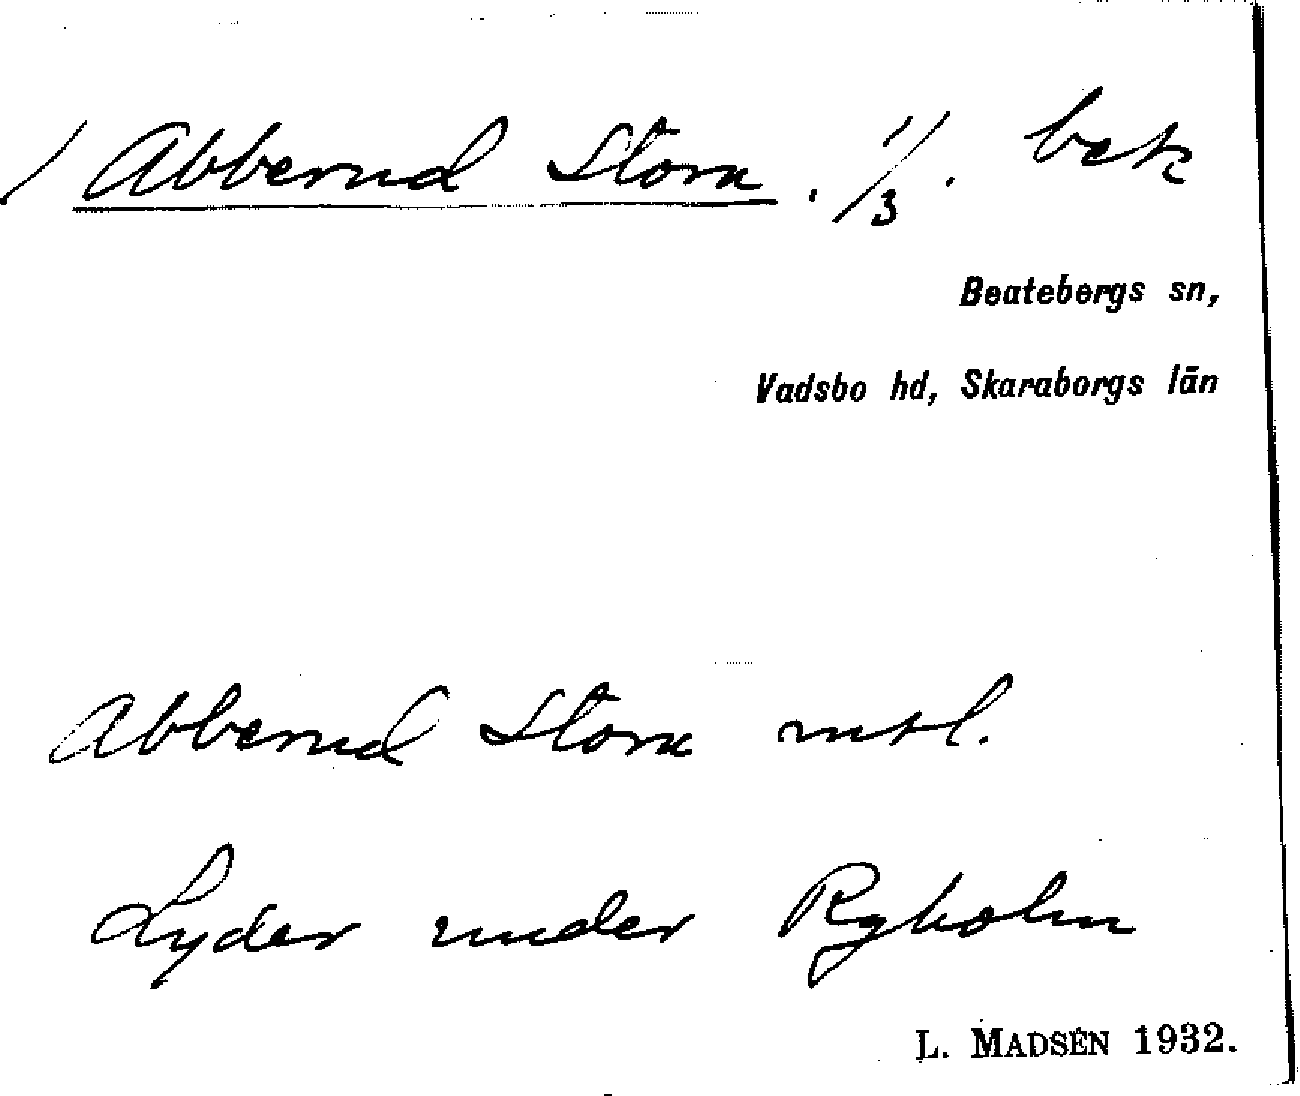 / Abberud Stora . 1/3 . bek
Beatebergs sn,
Vadsbo hd, Skaraborgs län
Abberud Stora mtl.
Lyder under Ryholm
L. MADSÉN 1932.